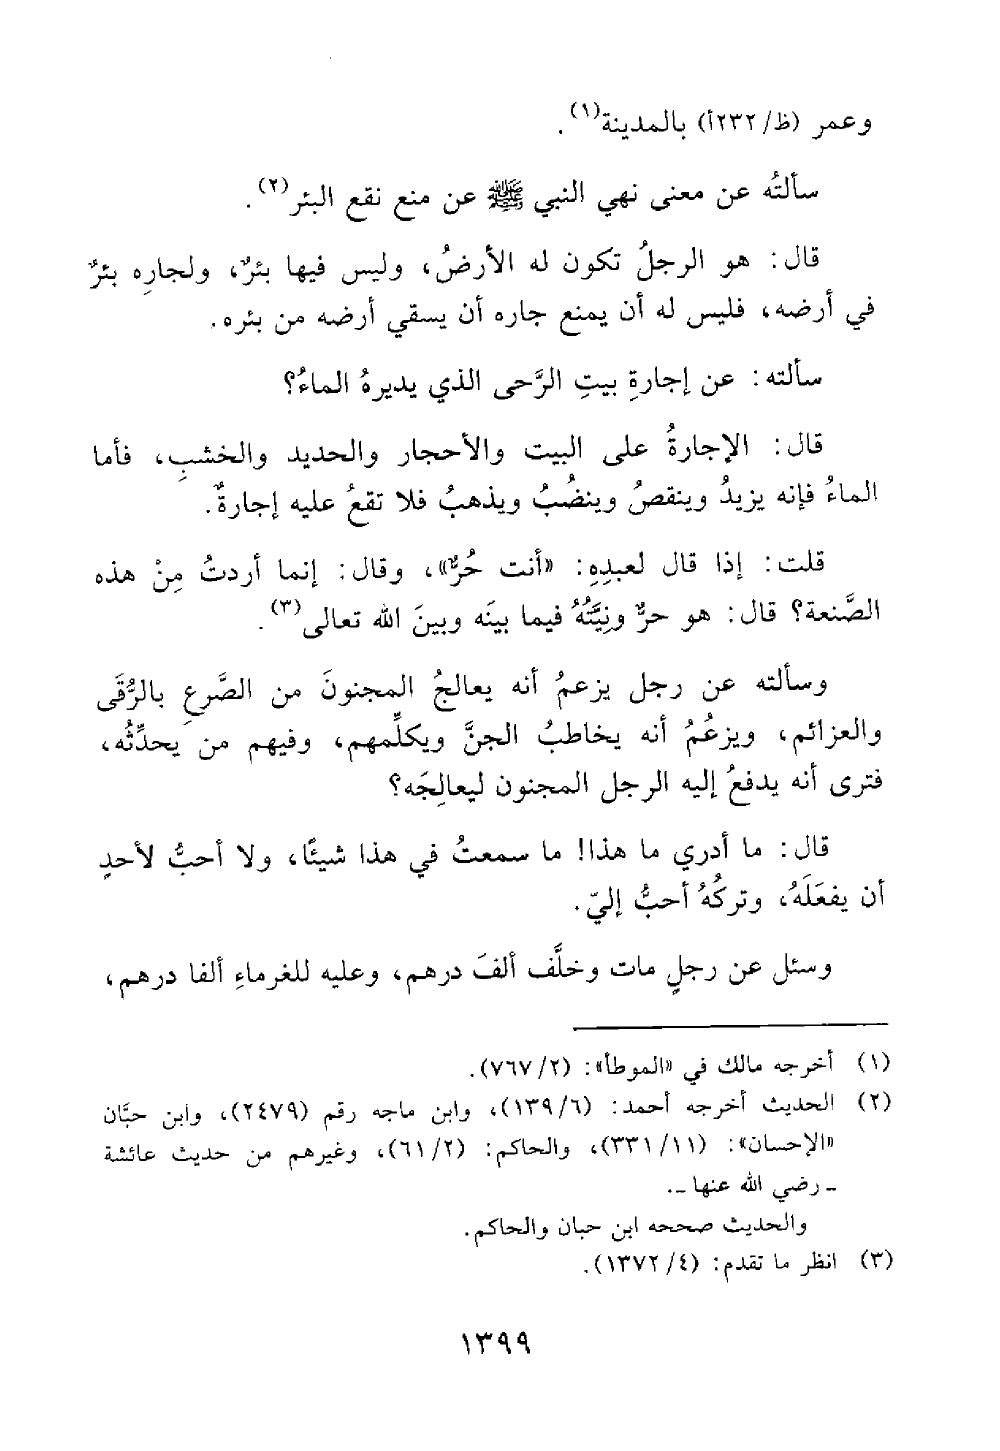 وعمر (ظ/٢٣٢أ) بالمدينة(١).
سألتُه عن معنى نهي النبي ﷺ عن منع نقع البئر(٢).
قال: هو الرجلُ تكون له الأرضُ، وليس فيها بئرٌ، ولجارِه بئرٌ
في أرضه، فليس له أن يمنع جاره أن يسقي أرضه من بئره.
سألته: عن إجارةِ بيتِ الرَّحى الذي يديرهُ الماءُ؟
قال: الإجارةُ على البيت والأحجار والحديد والخشبِ، فأما
الماءُ فإنه يزيدُ وينقصُ وينضُبُ ويذهبُ فلا تقعُ عليه إجارةٌ.
قلت: إذا قال لعبدِهِ: «أنت حُرٌّ»، وقال: إنما أردتُ مِنْ هذه
الصَّنعة؟ قال: هو حرٌّ ونِيَّتُهُ فيما بينَه وبينَ الله تعالى(٣).
وسألته عن رجل يزعمُ أنه يعالجُ المجنونَ من الصَّرعِ بالرُّقَى
والعزائم، ويزعُمُ أنه يخاطبُ الجنَّ ويكلِّمهم، وفيهم من يحدِّثُه،
فترى أنه يدفعُ إليه الرجل المجنون ليعالِجَه؟
قال: ما أدري ما هذا! ما سمعتُ في هذا شيئًا، ولا أحبُّ لأحدٍ
أن يفعَلَهُ، وتركُهُ أحبُّ إليّ.
وسئل عن رجلٍ مات وخلَّف ألفَ درهم، وعليه للغرماءِ ألفا درهم،
(١) أخرجه مالك في «الموطأ»: (٢/ ٧٦٧).
(٢) الحديث أخرجه أحمد: (٦/ ١٣٩)، وابن ماجه رقم (٢٤٧٩)، وابن حبَّان
«الإحسان»: (١١/ ٣٣١)، والحاكم: (٢/ ٦١)، وغيرهم من حديث عائشة
ـ رضي الله عنها ـ.
والحديث صححه ابن حبان والحاكم.
(٣) انظر ما تقدم: (٤/ ١٣٧٢).
١٣٩٩